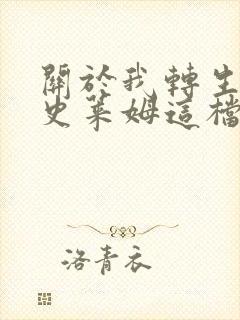 關於我轉生
史萊姆這檔
洛青衣